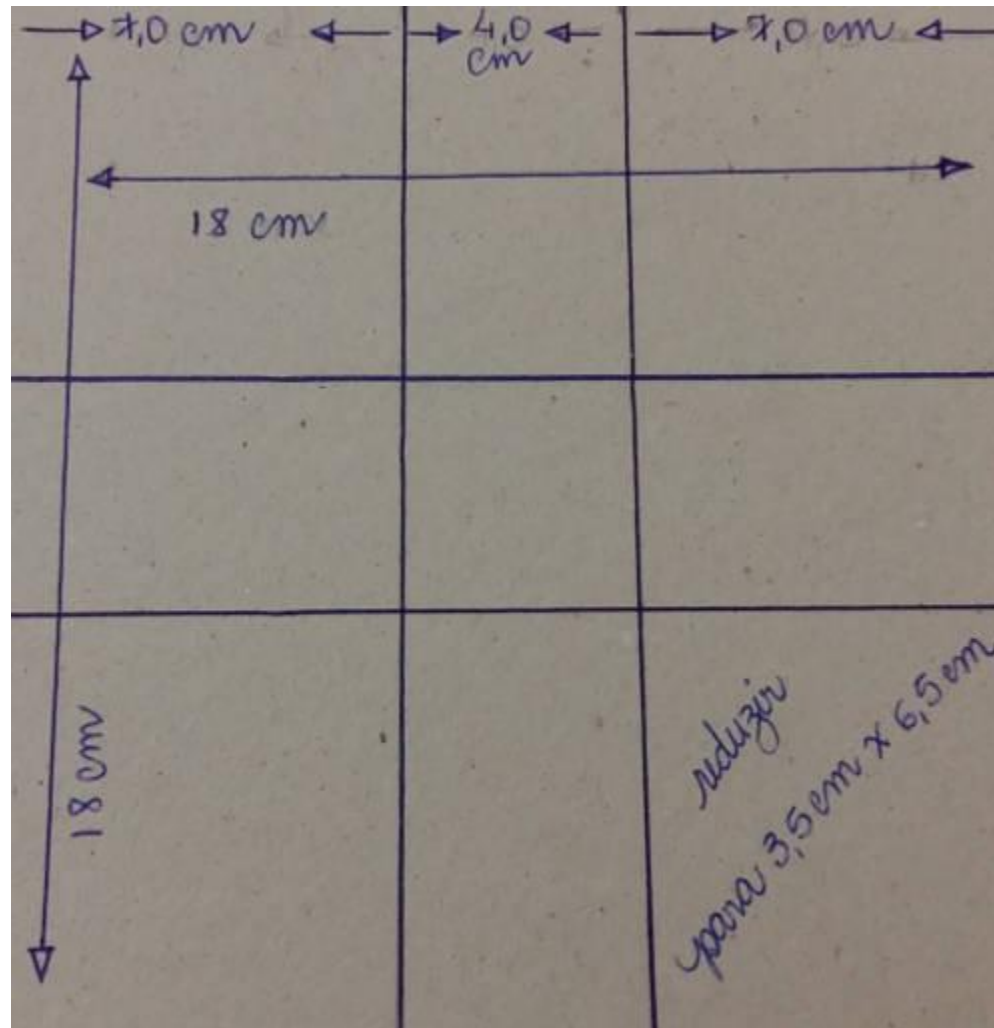 7,0 cm 4,0 7,0 cm
cm
18 cm
18 cm
reduzir
para 3,5 cm x 6,5 cm